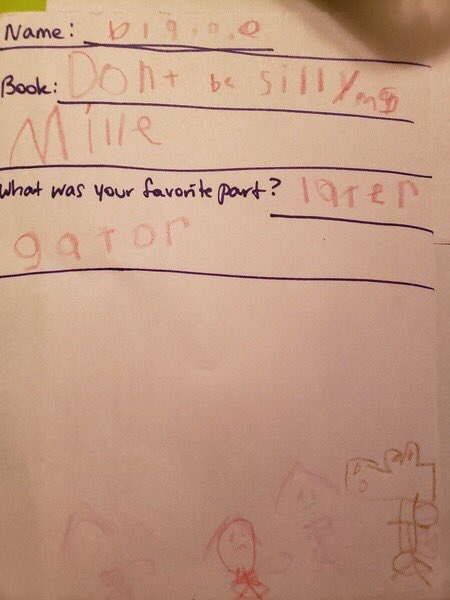 Name:
Book: Dont be silly ms
Mille
What was your favorite part? later
gator